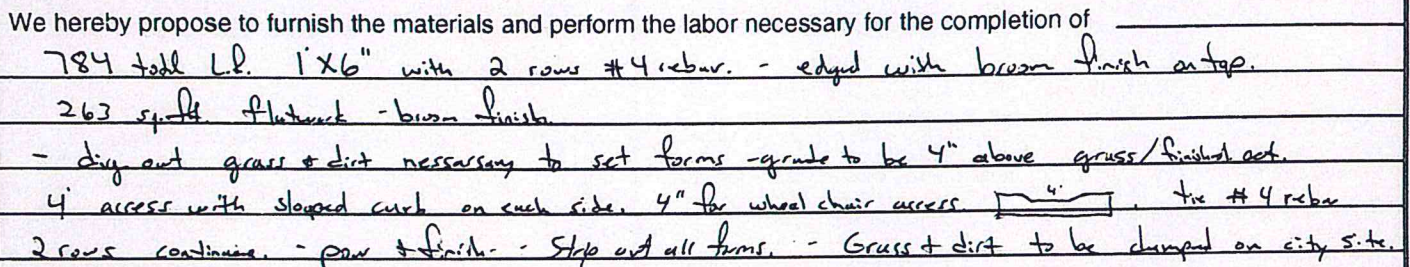 We hereby propose to furnish the materials and perform the labor necessary for the completion of
784 total L.f. 1'x6" with 2 rows #4 rebar. - edged with broom finish on top.
263 sq. ft. flatwork - broom finish.
- dig out grass & dirt nessarsary to set forms - grade to be 4" above grass/finished
4' access with slopped curb on each side. 4" for wheel chair access 4' . tie #4 rebar
2 rows continuine. - pour & finish - Strip out all forms. - Grass & dirt to be dumped on city site.